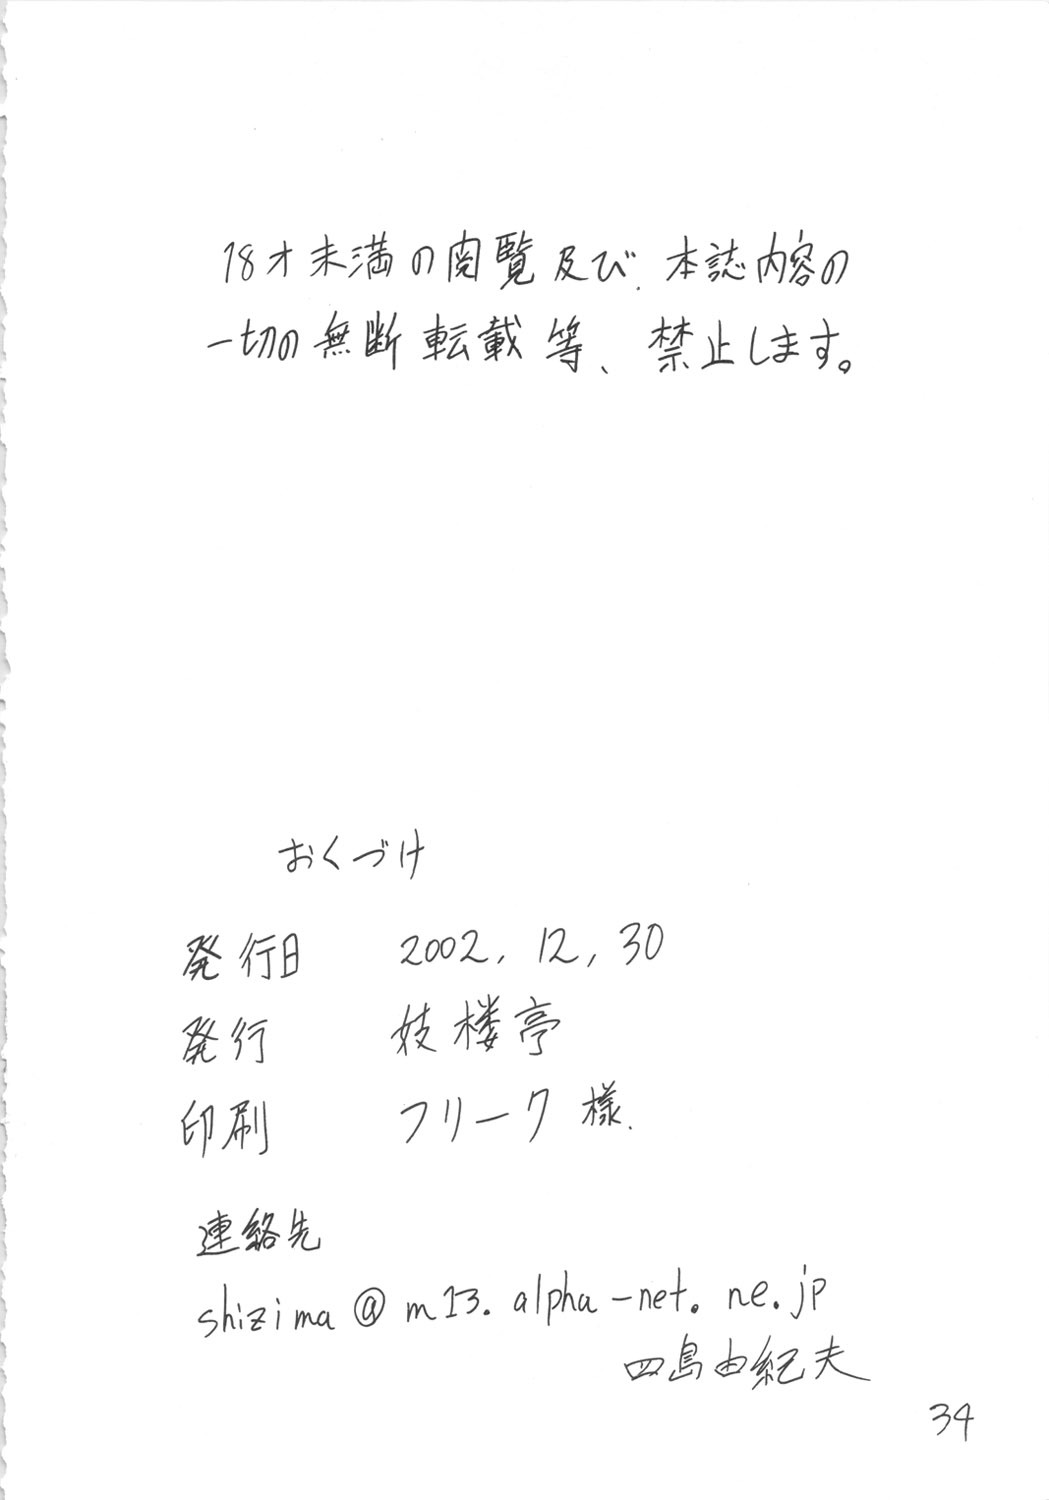 18才未満の閲覧及び、本誌内容の
一切の無断転載等、禁止します。
おくづけ
発行日 2002, 12, 30
発行 妓楼亭
印刷 フリーク様.
連絡先
shizima@m13.alpha-net.ne.jp
四島由紀夫
34